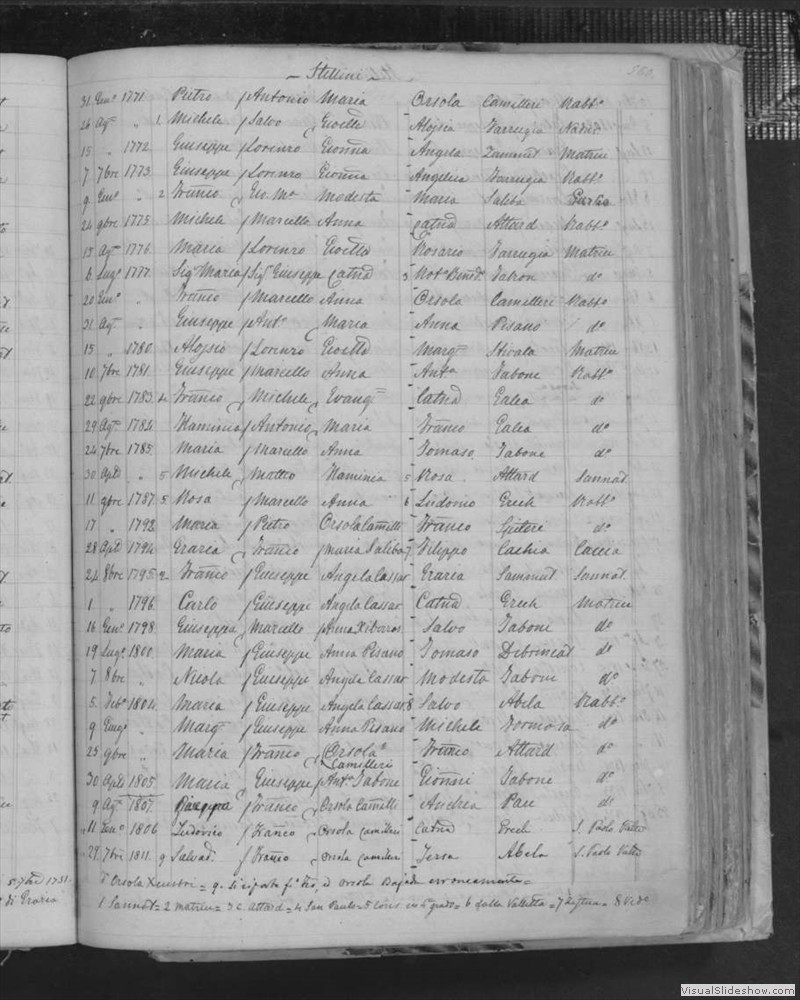 Stellini
560
31 Genº 1771 Pietro f Antonio Maria Orsola Camilleri Rabbº
26 Agº " 1 Michele f Salvo Gioella Aloisia Farrugia
15 " 1772 Giuseppe f Lorenzo Gionna Angela Zammit Matrice
7 7bre 1773 Giuseppe f Lorenzo Gionna Angelica Farrugia Rabbº
9 Genº " 2 Franco Gio. Mª Modesta Maria Saliba
24 9bre 1775 Michele f Marcello Anna Catnd Attard Rabbº
15 Agº 1776 Maria f Lorenzo Gioella Rosario Farrugia Matrice
6 Lugº 1777 Sigª Maria f Sigr Giuseppe Catnd 3 Notº Bened. Falzon dº
20 Genº " Franco f Marcello Anna Orsola Camilleri Rabbº
31 Agº " Giuseppe f Antº Maria Anna Pisano dº
15 " 1780 Aloisio f Lorenzo Gioella Margª Stivala Matrice
10 7bre 1781 Giuseppe f Marcello Anna Antª Tabone Rabbº
22 9bre 1783 4 Franco Michele Evangª Catnd Galea dº
29 Agº 1784 Flaminia f Antonio Maria Franco Galea dº
24 7bre 1785 Maria f Marcello Anna Tomaso Tabone dº
30 Aple " 5 Michele Matteo Flaminia 5 Rosa Attard Sannat
11 9bre 1787 5 Rosa f Marcello Anna 6 Ludovico Grech Rabbº
17 " 1792 Maria f Pietro Orsola Camilli Franco dº
28 Aple 1794 Grazia Franco f Maria Saliba 7 Filippo Cachia Caccia
24 8bre 1795 2 Franco f Giuseppe Angela Cassar Grazia Sammut Sannat
1 " 1796 Carlo f Giuseppe Angela Cassar Catnd Grech Matrice
16 Genº 1798 Giuseppa Marcello f Anna Xiberras Salvo Tabone dº
19 Lugº 1800 Maria f Giuseppe Anna Pisano Tomaso Debrincat dº
7 8bre " Nicola f Giuseppe Angela Cassar Modesta Tabone dº
5 Febº 1804 Maria f Giuseppe Angela Cassar 8 Salvo Abela Rabbº
9 " Margª f Giuseppe Anna Pisano Michele Formosa dº
25 9bre " Maria f Franco Orsola Camilleri Franco Attard dº
30 Aple 1805 Maria Giuseppe f Antª Tabone Gionni Tabone dº
9 Agº 1807 f Franco Orsola Camilli Andrea Pace dº
11 Genº 1806 Ludovico f Franco Orsola Camilleri Catnd Grech S. Paolo Valtta
29 7bre 1811 9 Salvad. f Franco Orsola Camilleri Teresa Abela S. Paolo Valtta
Orsola = 9. Si riporta fº ed Orsola erroneamente =
1 Sannat = 2 Matrice = 3 C. Attard = 4 San Paolo = 5 in grado = 6 dalla Valletta = 7 = 8 Vede
5 7bre 1751
di Grazia
VisualSlideshow.com